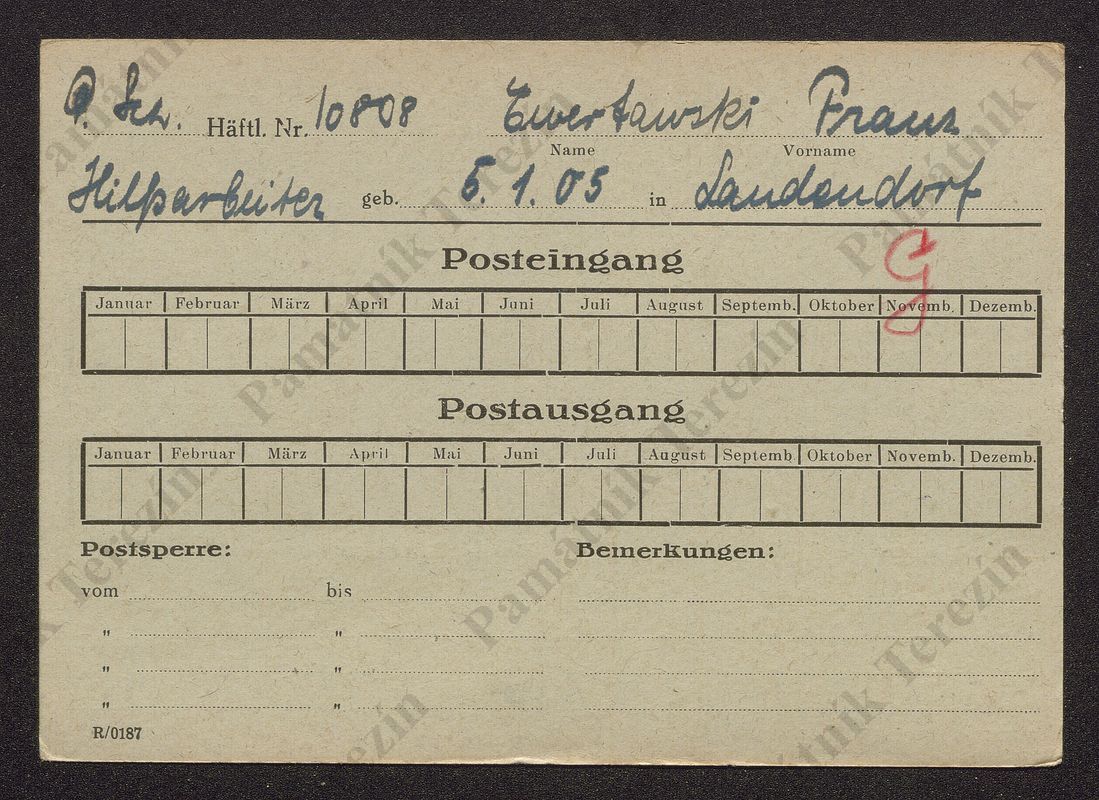 P. Sch. Häftl. Nr. 10808 Ewertawski Franz
Name Vorname
Hilfsarbeiter geb. 5.1.05 in Landendorf
G
Posteingang
Januar Februar März April Mai Juni Juli August Septemb. Oktober Novemb. Dezemb.
Postausgang
Januar Februar März April Mai Juni Juli August Septemb. Oktober Novemb. Dezemb.
Postsperre: Bemerkungen:
vom bis
" "
" "
" "
R/0187
Památník Terezín